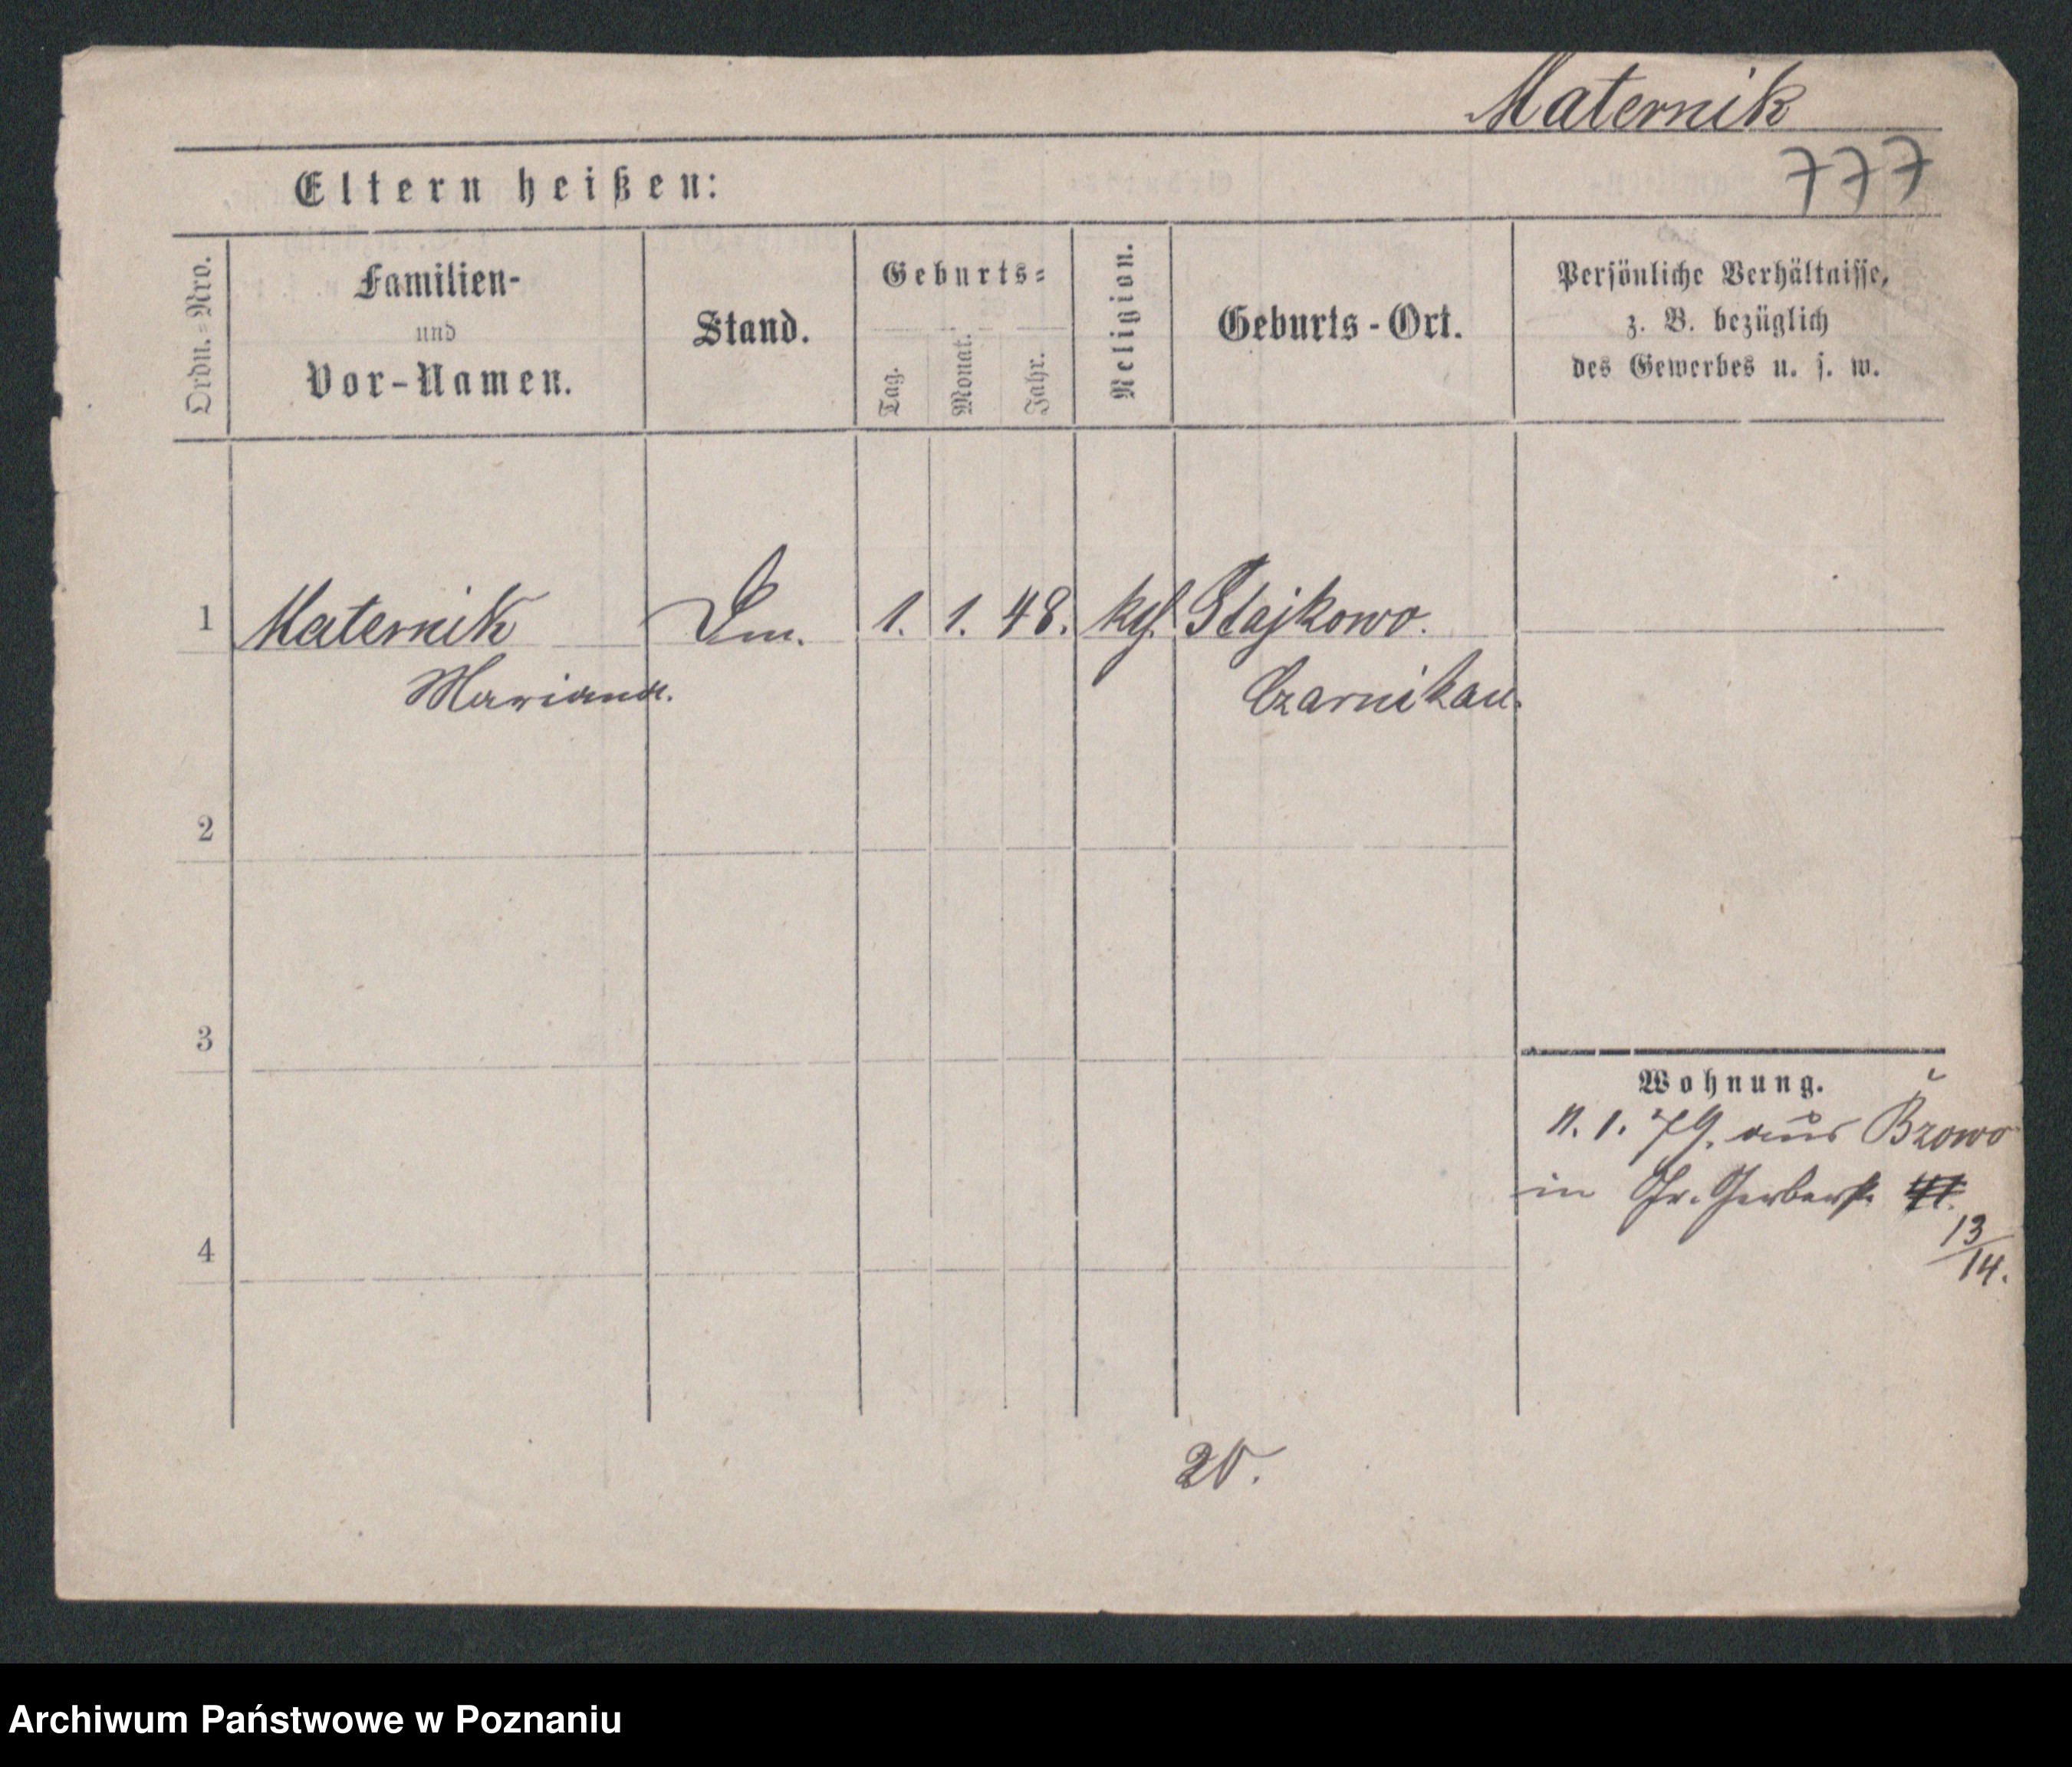 Maternik
777
Eltern heißen:
Ordn.=Nro.
Familien-
und
Vor-Namen.
Stand.
Geburts=
Tag.
Monat.
Jahr.
Religion.
Geburts-Ort.
Persönliche Verhältnisse,
z. B. bezüglich
des Gewerbes u. s. w.
1 Maternik 1. 1. 48. kth. Stajkowo.
Marianna. Czarnikau.
2
3
4
Wohnung.
n. 1. 79. aus Bzowo
in Gr. Gerberstr. 41.
13/14.
20.
Archiwum Państwowe w Poznaniu